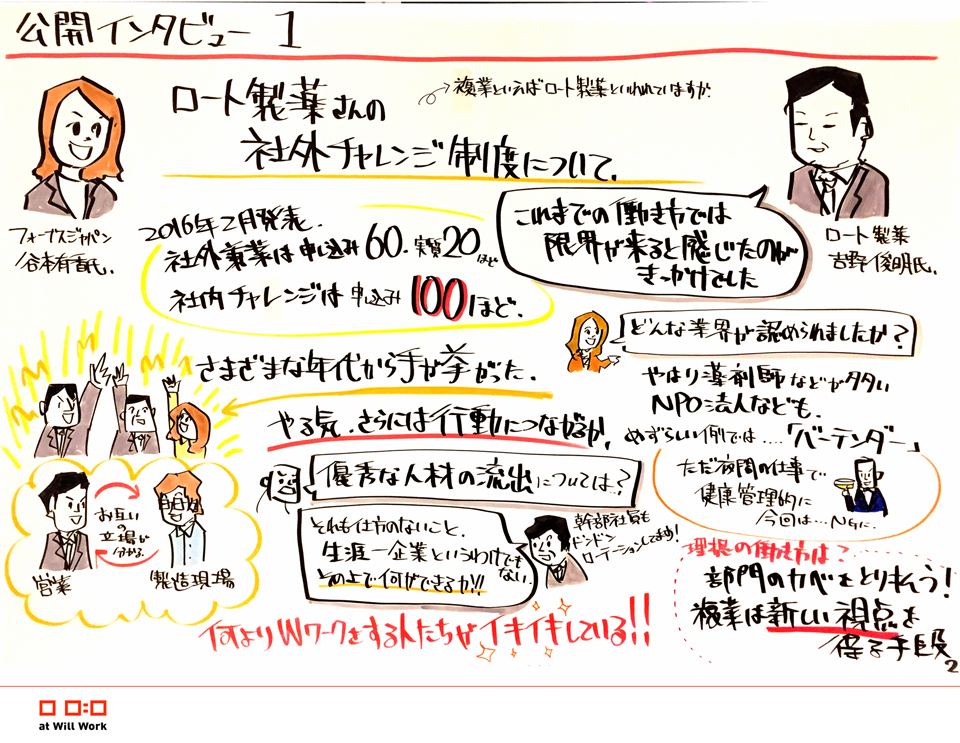 公開インタビュー 1
ロート製薬さんの
複業といえばロート製薬といわれていますが.
社外チャレンジ制度について.
フォーブスジャパン
谷本有香氏.
ロート製薬
吉野俊明氏.
2016年2月発表.
社外兼業は申し込み60.実質20ほど
社内チャレンジは申し込み100ほど.
これまでの働き方では
限界が来ると感じたのが
きっかけでした
どんな業界が認められましたか?
やはり薬剤師などが多い
NPO法人なども.
めずらしい例では....「バーテンダー」
ただ夜間の仕事で
健康管理的に
今回は...NGに.
さまざまな年代から手が挙がった.
やる気.さらには行動につながるか.
お互い
の
立場が
分かる.
営業
製造現場
優秀な人材の流出については..?
それも仕方のないこと.
生涯一企業というわけでも
ない.
その上で何ができるか!!
幹部社員も
ドンドン
ローテーションしてます!
理想の働き方は?
部門のカベをとり払う!
複業は新しい視点を
得る手段
何よりWワークをする人たちがイキイキしている!!
2
at Will Work